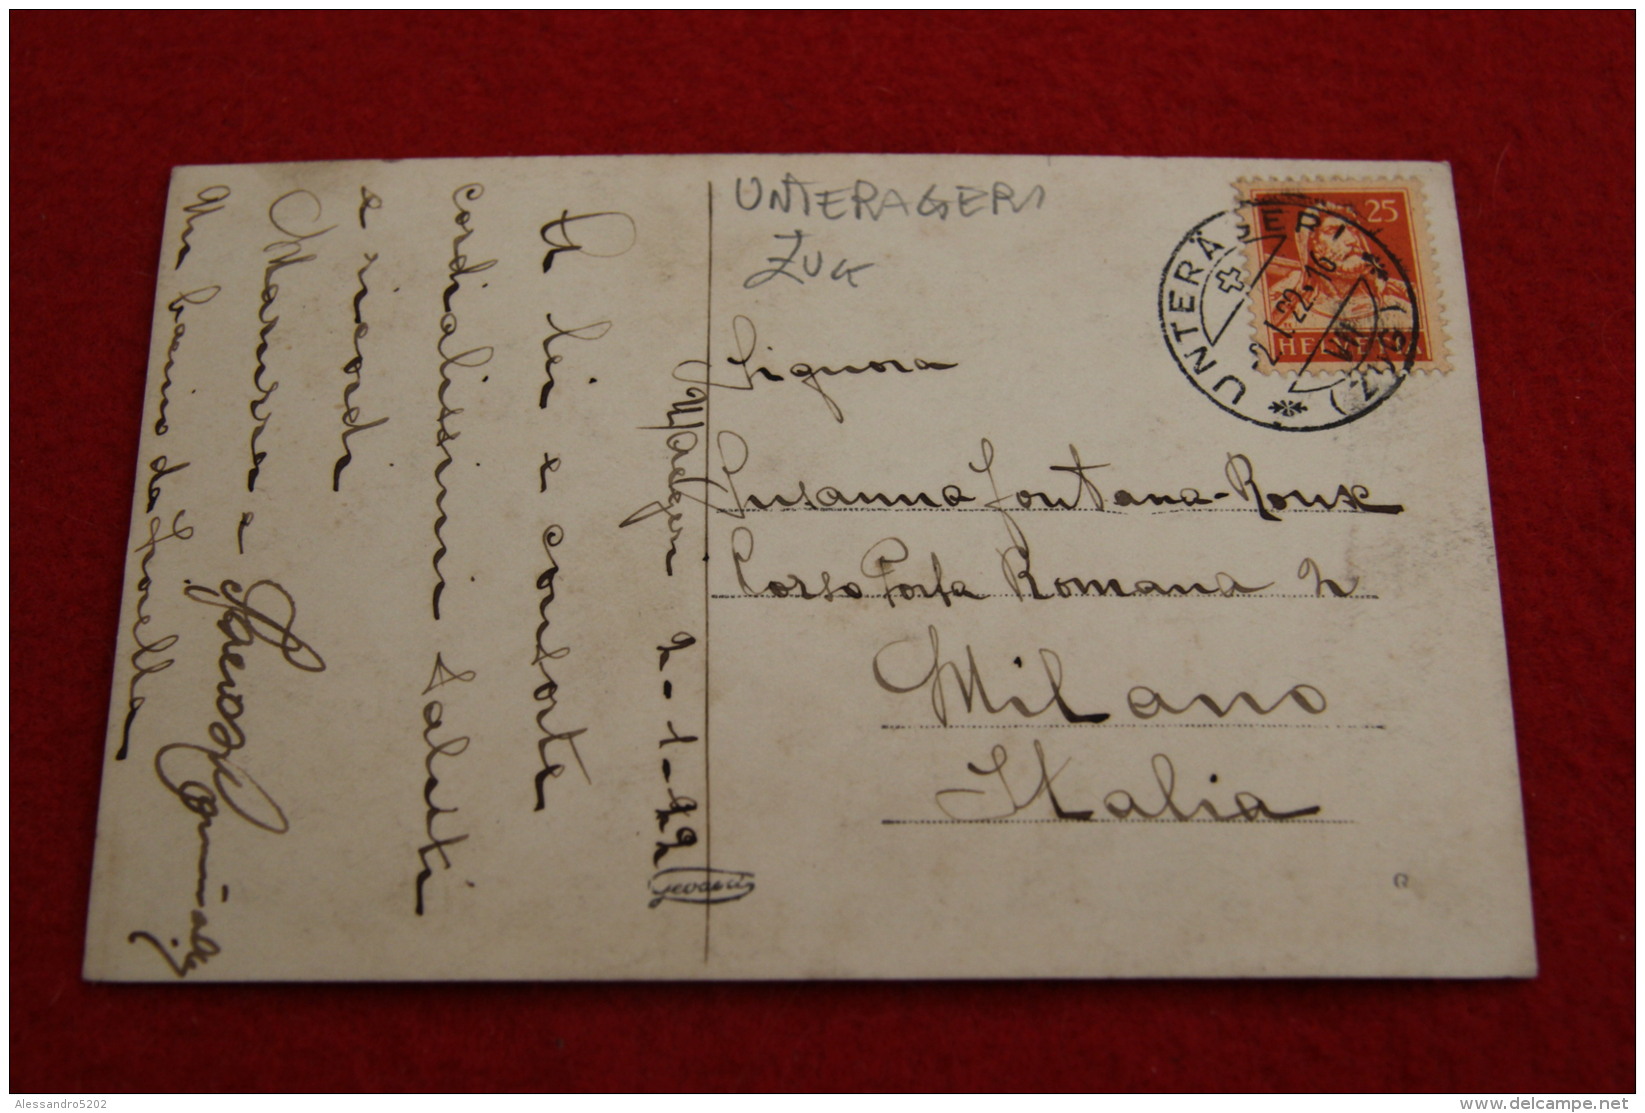 UNTERAGERI
ZUG
UNTERÄGERI
(ZUG)
-2.I.22.16
VII
25
HELVETIA
Signora
Susanna Fontana-Roux
Corso Porta Romana 2
Milano
Italia
Aegeri 2-1-22
A lei e consorte
cordialissimi saluti
e ricordi
Marisa e
Un bacino da Fraella
Gevaert
Alessandro5202
www.delcampe.net